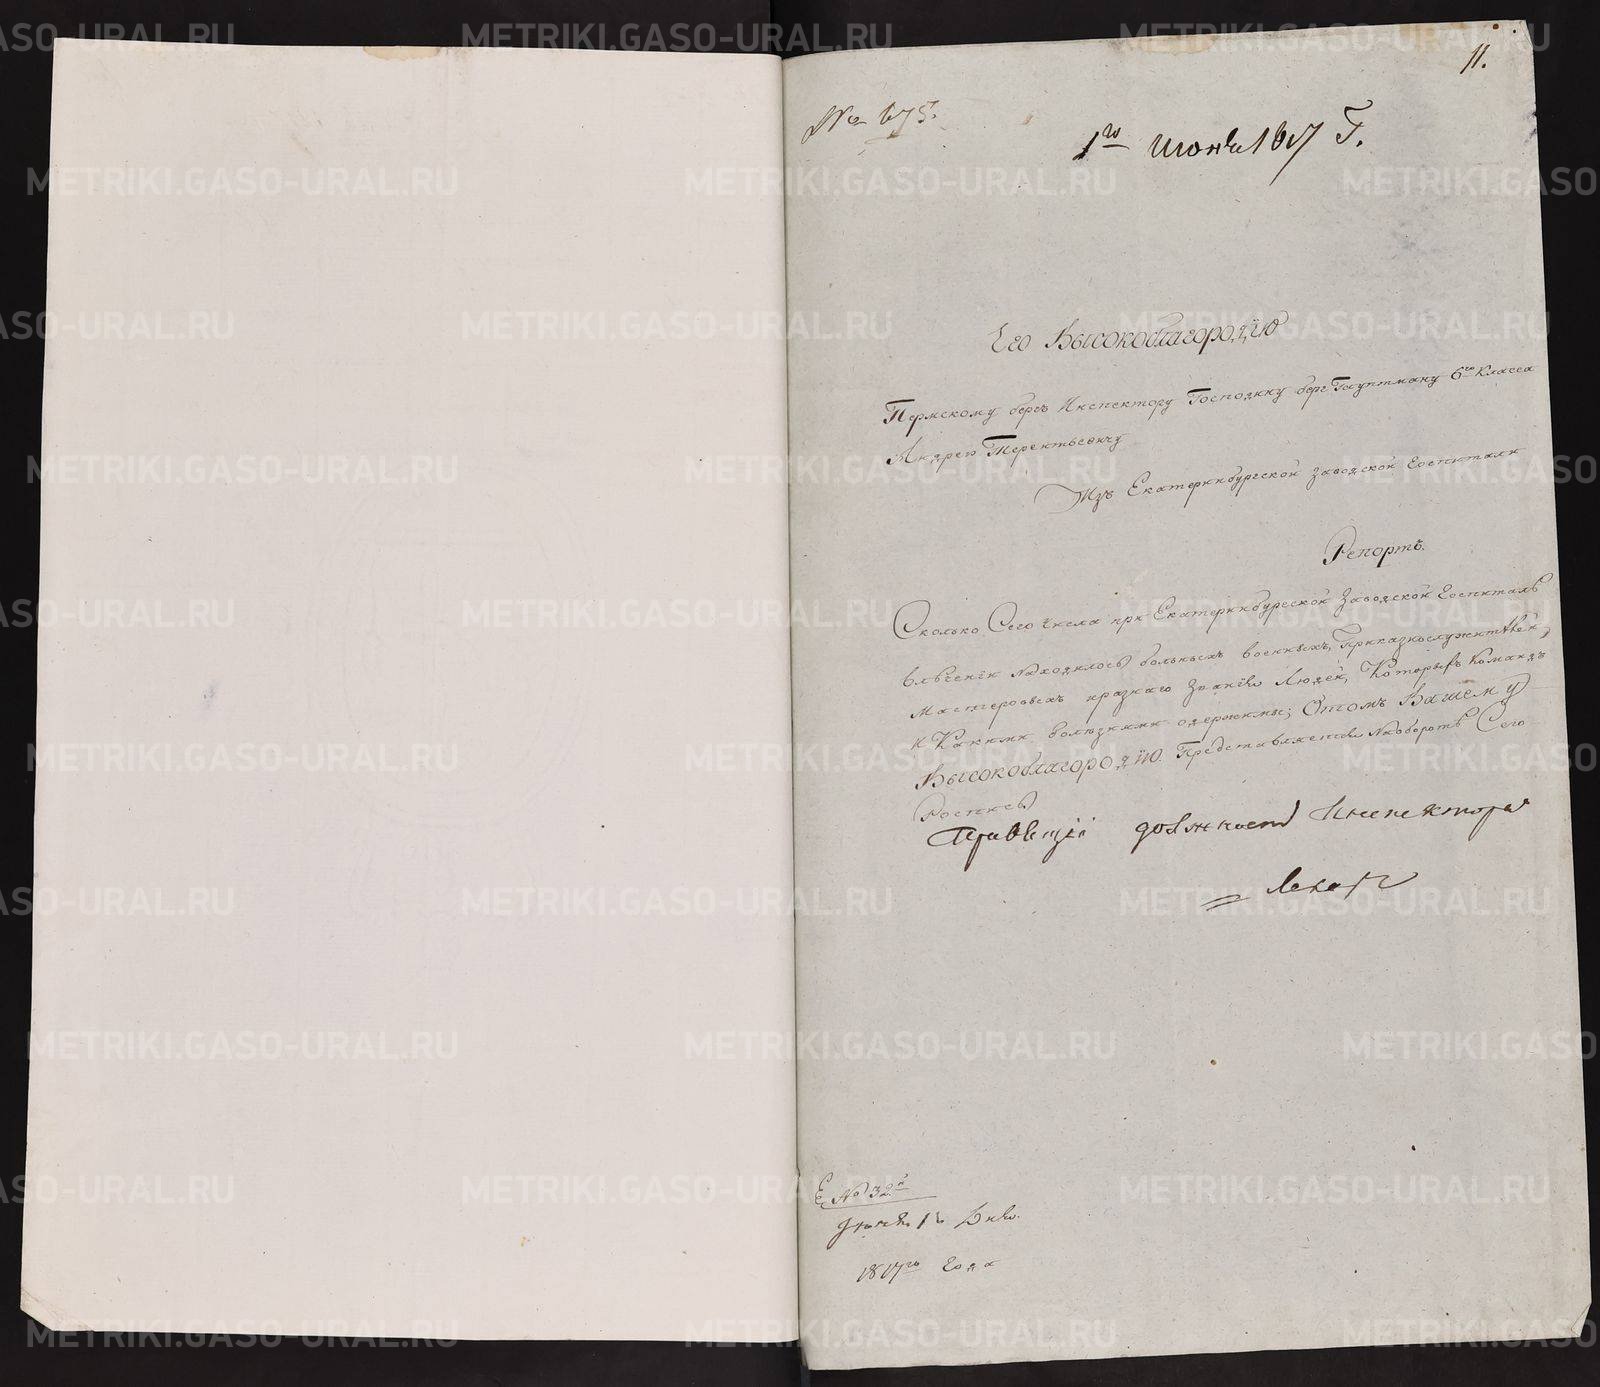 11.
№ 675.
1го июня 1817 Г.
Его Высокоблагородiю
Пермскому берхъ Инспектору Господину берг Гауптману 6го класса
Андрею Терентьевичу
Изъ Екатеринбургской заводской Госпитали
Репортъ.
Сколько Сего числа при Екатеринбургской Заводской Госпиталѣ
влѣченiи находилось больныхъ военныхъ, Приказнослужителей,
мастеровыхъ иразнаго званiя людей, Которыхъ командъ
и Какими болѣзнями одержимы; Отомъ Вашему
Высокоблагородiю Представляется Наоборотѣ Сего
Роспись
Правящiй должность Инспектора
Лекарь
№ 32й
Iюня 1 дня
1817го года
METRIKI.GASO-URAL.RU